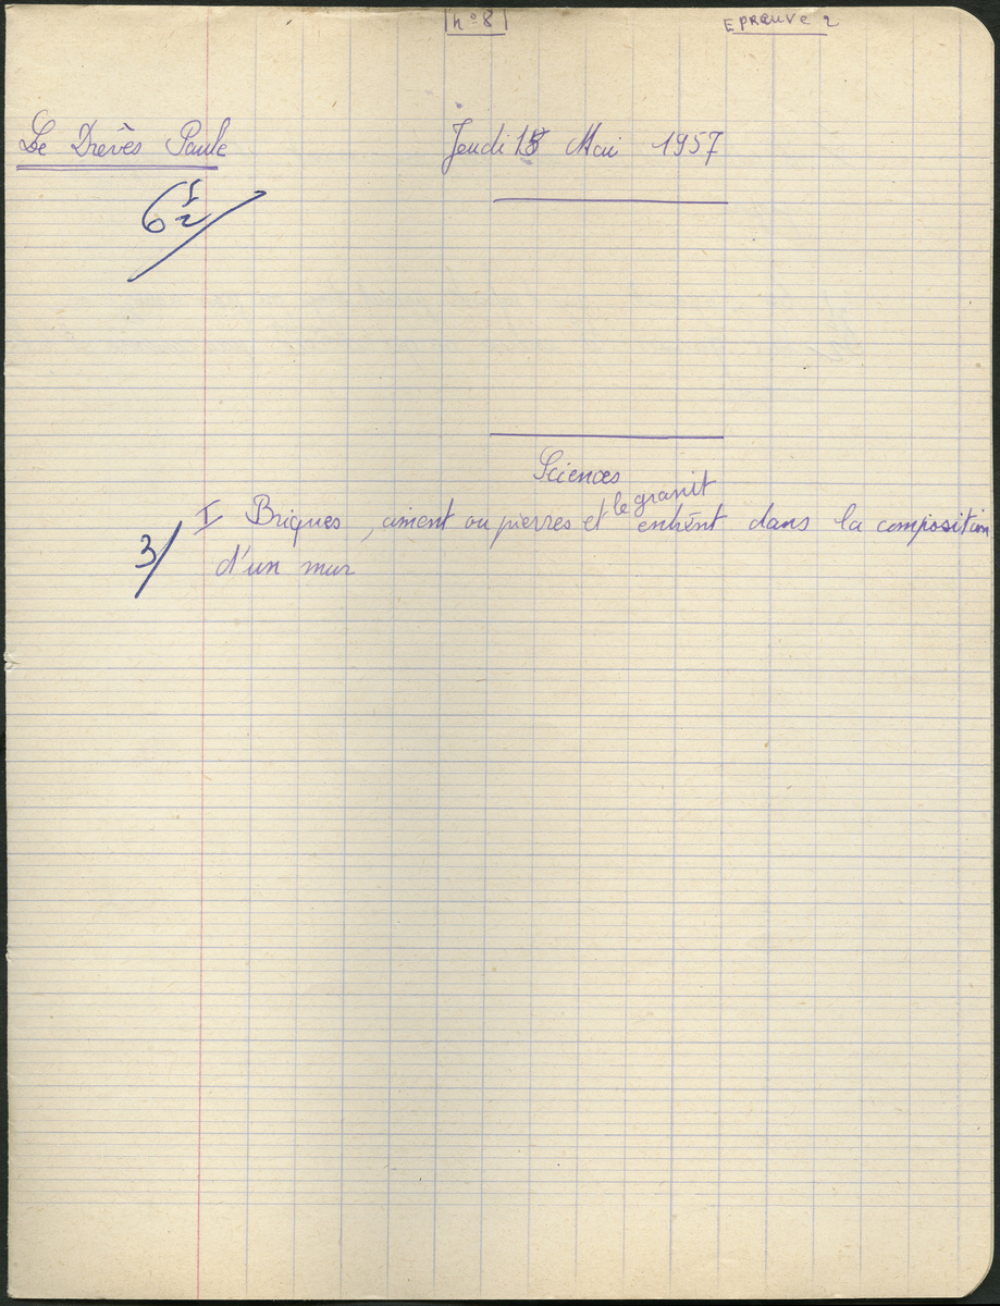 n°8 Epreuve 2
Le Drévès Paule Jeudi 16 Mai 1957
6 1/2
Sciences
le granit
I Briques, ciment ou pierres et entrent dans la composition
3/ d'un mur